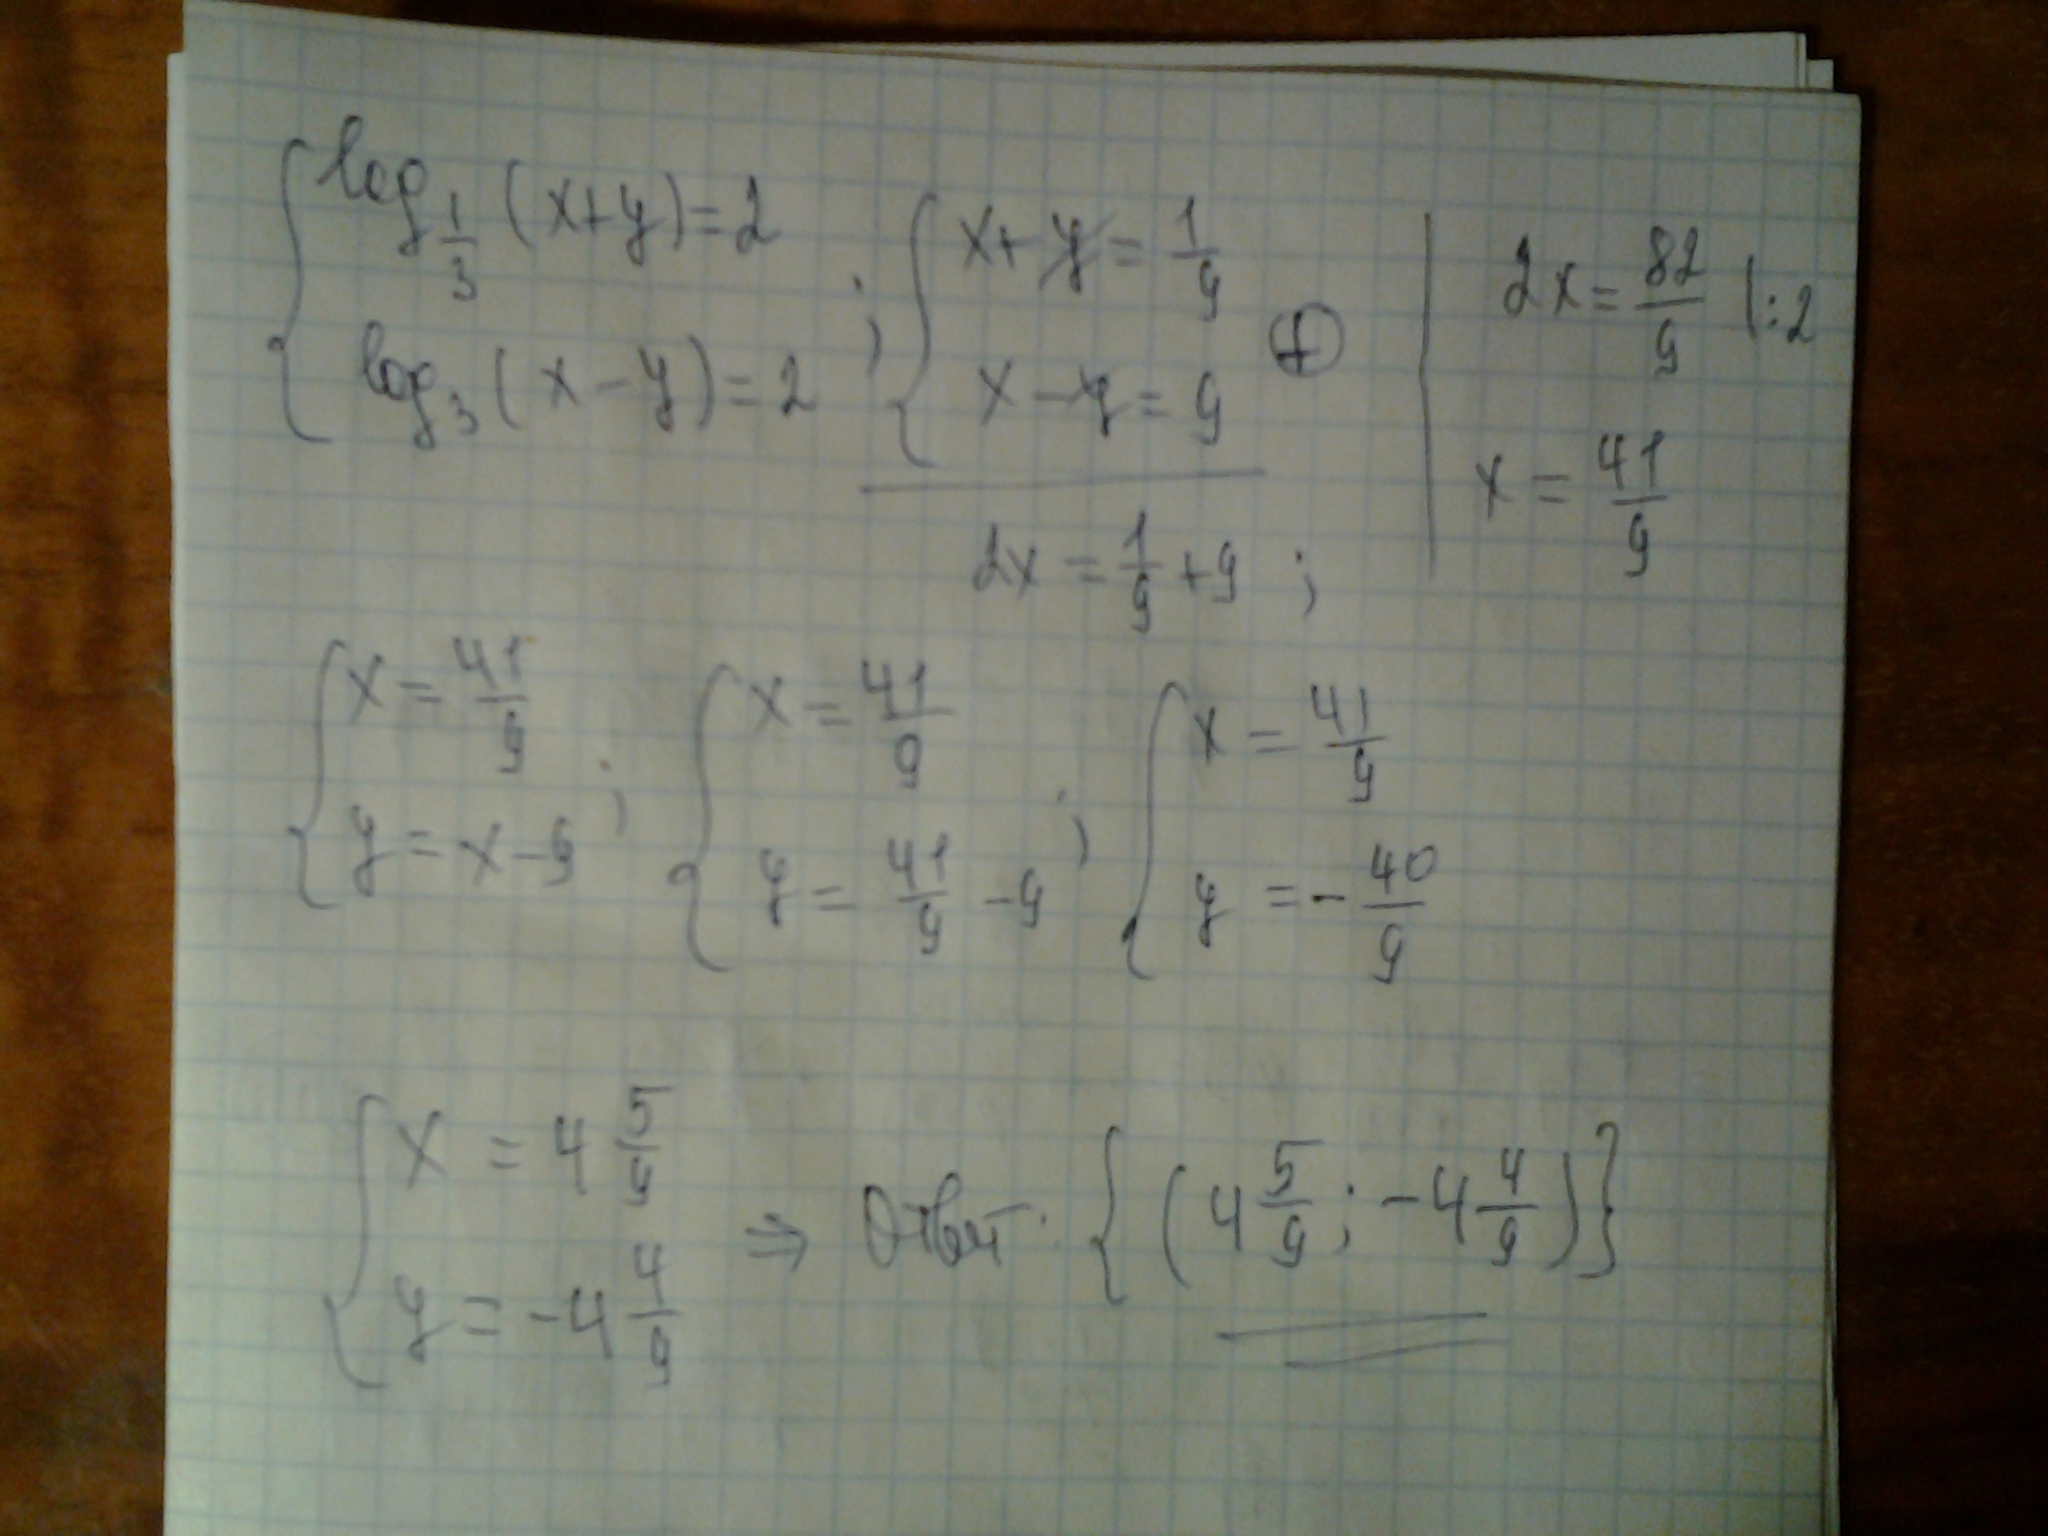 { log_{1/3} (x+y) = 2
log_3 (x - y) = 2 ;
{ x + y = 1/9
x - y = 9 ⊕
2x = 1/9 + 9 ;
2x = 82/9 |:2
x = 41/9
{ x = 41/9
y = x - 9 ;
{ x = 41/9
y = 41/9 - 9 ;
{ x = 41/9
y = - 40/9
{ x = 4 5/9
y = -4 4/9
⇒ Ответ: {(4 5/9 ; -4 4/9)}